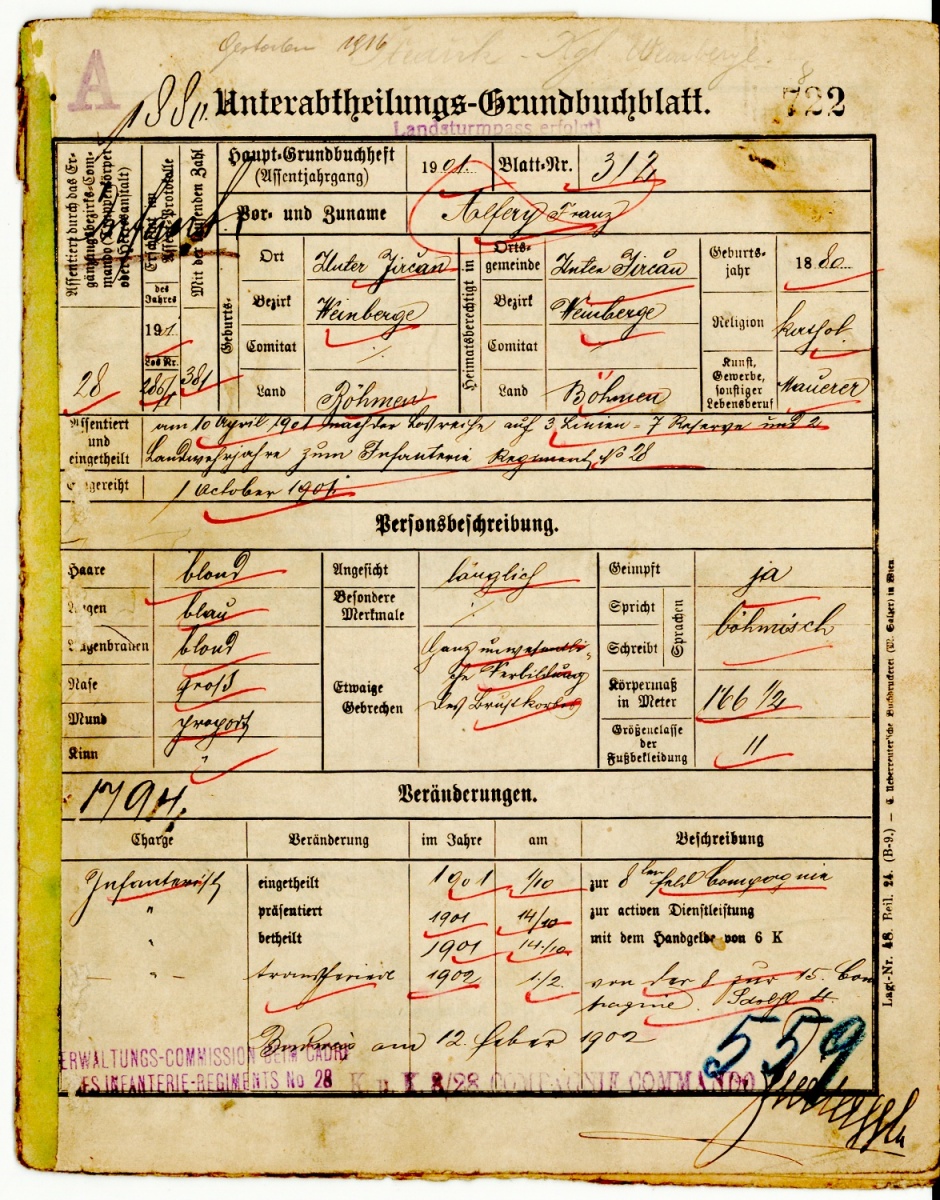 Gestorben 1916
A
1880.
Unterabtheilungs-Grundbuchblatt.
722
Landsturmpass erfolgt!
Assentiert durch das Ergänzungsbezirks-Commando (Truppenkörper oder Heeresanstalt)
28
Erscheint im Assent-Protokolle
des Jahres
1901
Los Nr.
Mit der laufenden Zahl
381
Haupt-Grundbuchheft
(Assentjahrgang)
1901.
Blatt-Nr.
312
Vor- und Zuname
Franz
Geburts-
Ort
Unter Jirčan
Bezirk
Weinberge
Comitat
Land
Böhmen
Heimatsberechtigt in
Ortsgemeinde
Unter Jirčan
Bezirk
Weinberge
Comitat
Land
Böhmen
Geburtsjahr
1880
Religion
kathol.
Kunst, Gewerbe, sonstiger Lebensberuf
Maurer
Assentiert und eingetheilt
am 10 April 1901 nach der Losreihe auf 3 Linien- 7 Reserve und 2
Landwehrjahre zum Infanterie Regiment No 28
Eingereiht
1 October 1901.
Personsbeschreibung.
Haare
blond
Augen
blau
Augenbrauen
blond
Nase
groß
Mund
proport
Kinn
"
Angesicht
länglich
Besondere Merkmale
Etwaige Gebrechen
Ganz unwesentli-
che Verbildung
des Brustkorbes
Geimpft
ja
Spricht
Schreibt
Sprachen
böhmisch
Körpermaß in Meter
166 1/2
Größenclasse der Fußbekleidung
11
Lagr-Nr. 48. Beil. 24. (B-9.) — C. Ueberreuter'sche Buchdruckerei (M. Salzer) in Wien
1794.
Veränderungen.
Charge
Veränderung
im Jahre
am
Beschreibung
Infanterist
eingetheilt
1901
1/10
zur 8ten Feld Compagnie
"
präsentiert
1901
14/10
zur activen Dienstleistung
"
betheilt
1901
14/10
mit dem Handgelde von 6 K
"
transferiert
1902
1/2
von der 8 zur 15. Com
pagnie.
am 12. Feber 1902
559
VERWALTUNGS-COMMISSION BEIM CADRE
DES INFANTERIE-REGIMENTS No 28
K. u. K. 8/28 COMPAGNIE COMMANDO